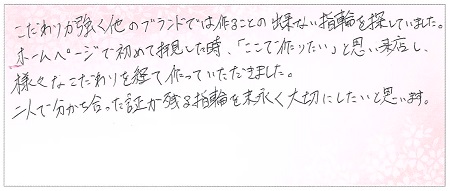 こだわりが強く他のブランドでは作ることの出来ない指輪を探していました。
ホームページで初めて拝見した時、「ここで作りたい」と思い来店し、
様々なこだわりを経て作っていただきました。
二人で分かち合った証が残る指輪を末永く大切にしたいと思います。